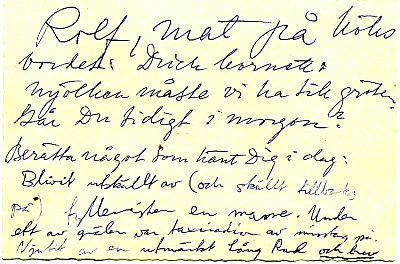 Rolf, mat på köks
bordet. Drick
mjölken måste vi ha till gröten.
Går Du tidigt i morgon?
Berätta något som hänt Dig i dag:
Blivit utskällt av (och skällt tillbaka
på) en masse. Under
ett av grälen var taxiradion av misstag på.
Njutit av en utmärkt lång och